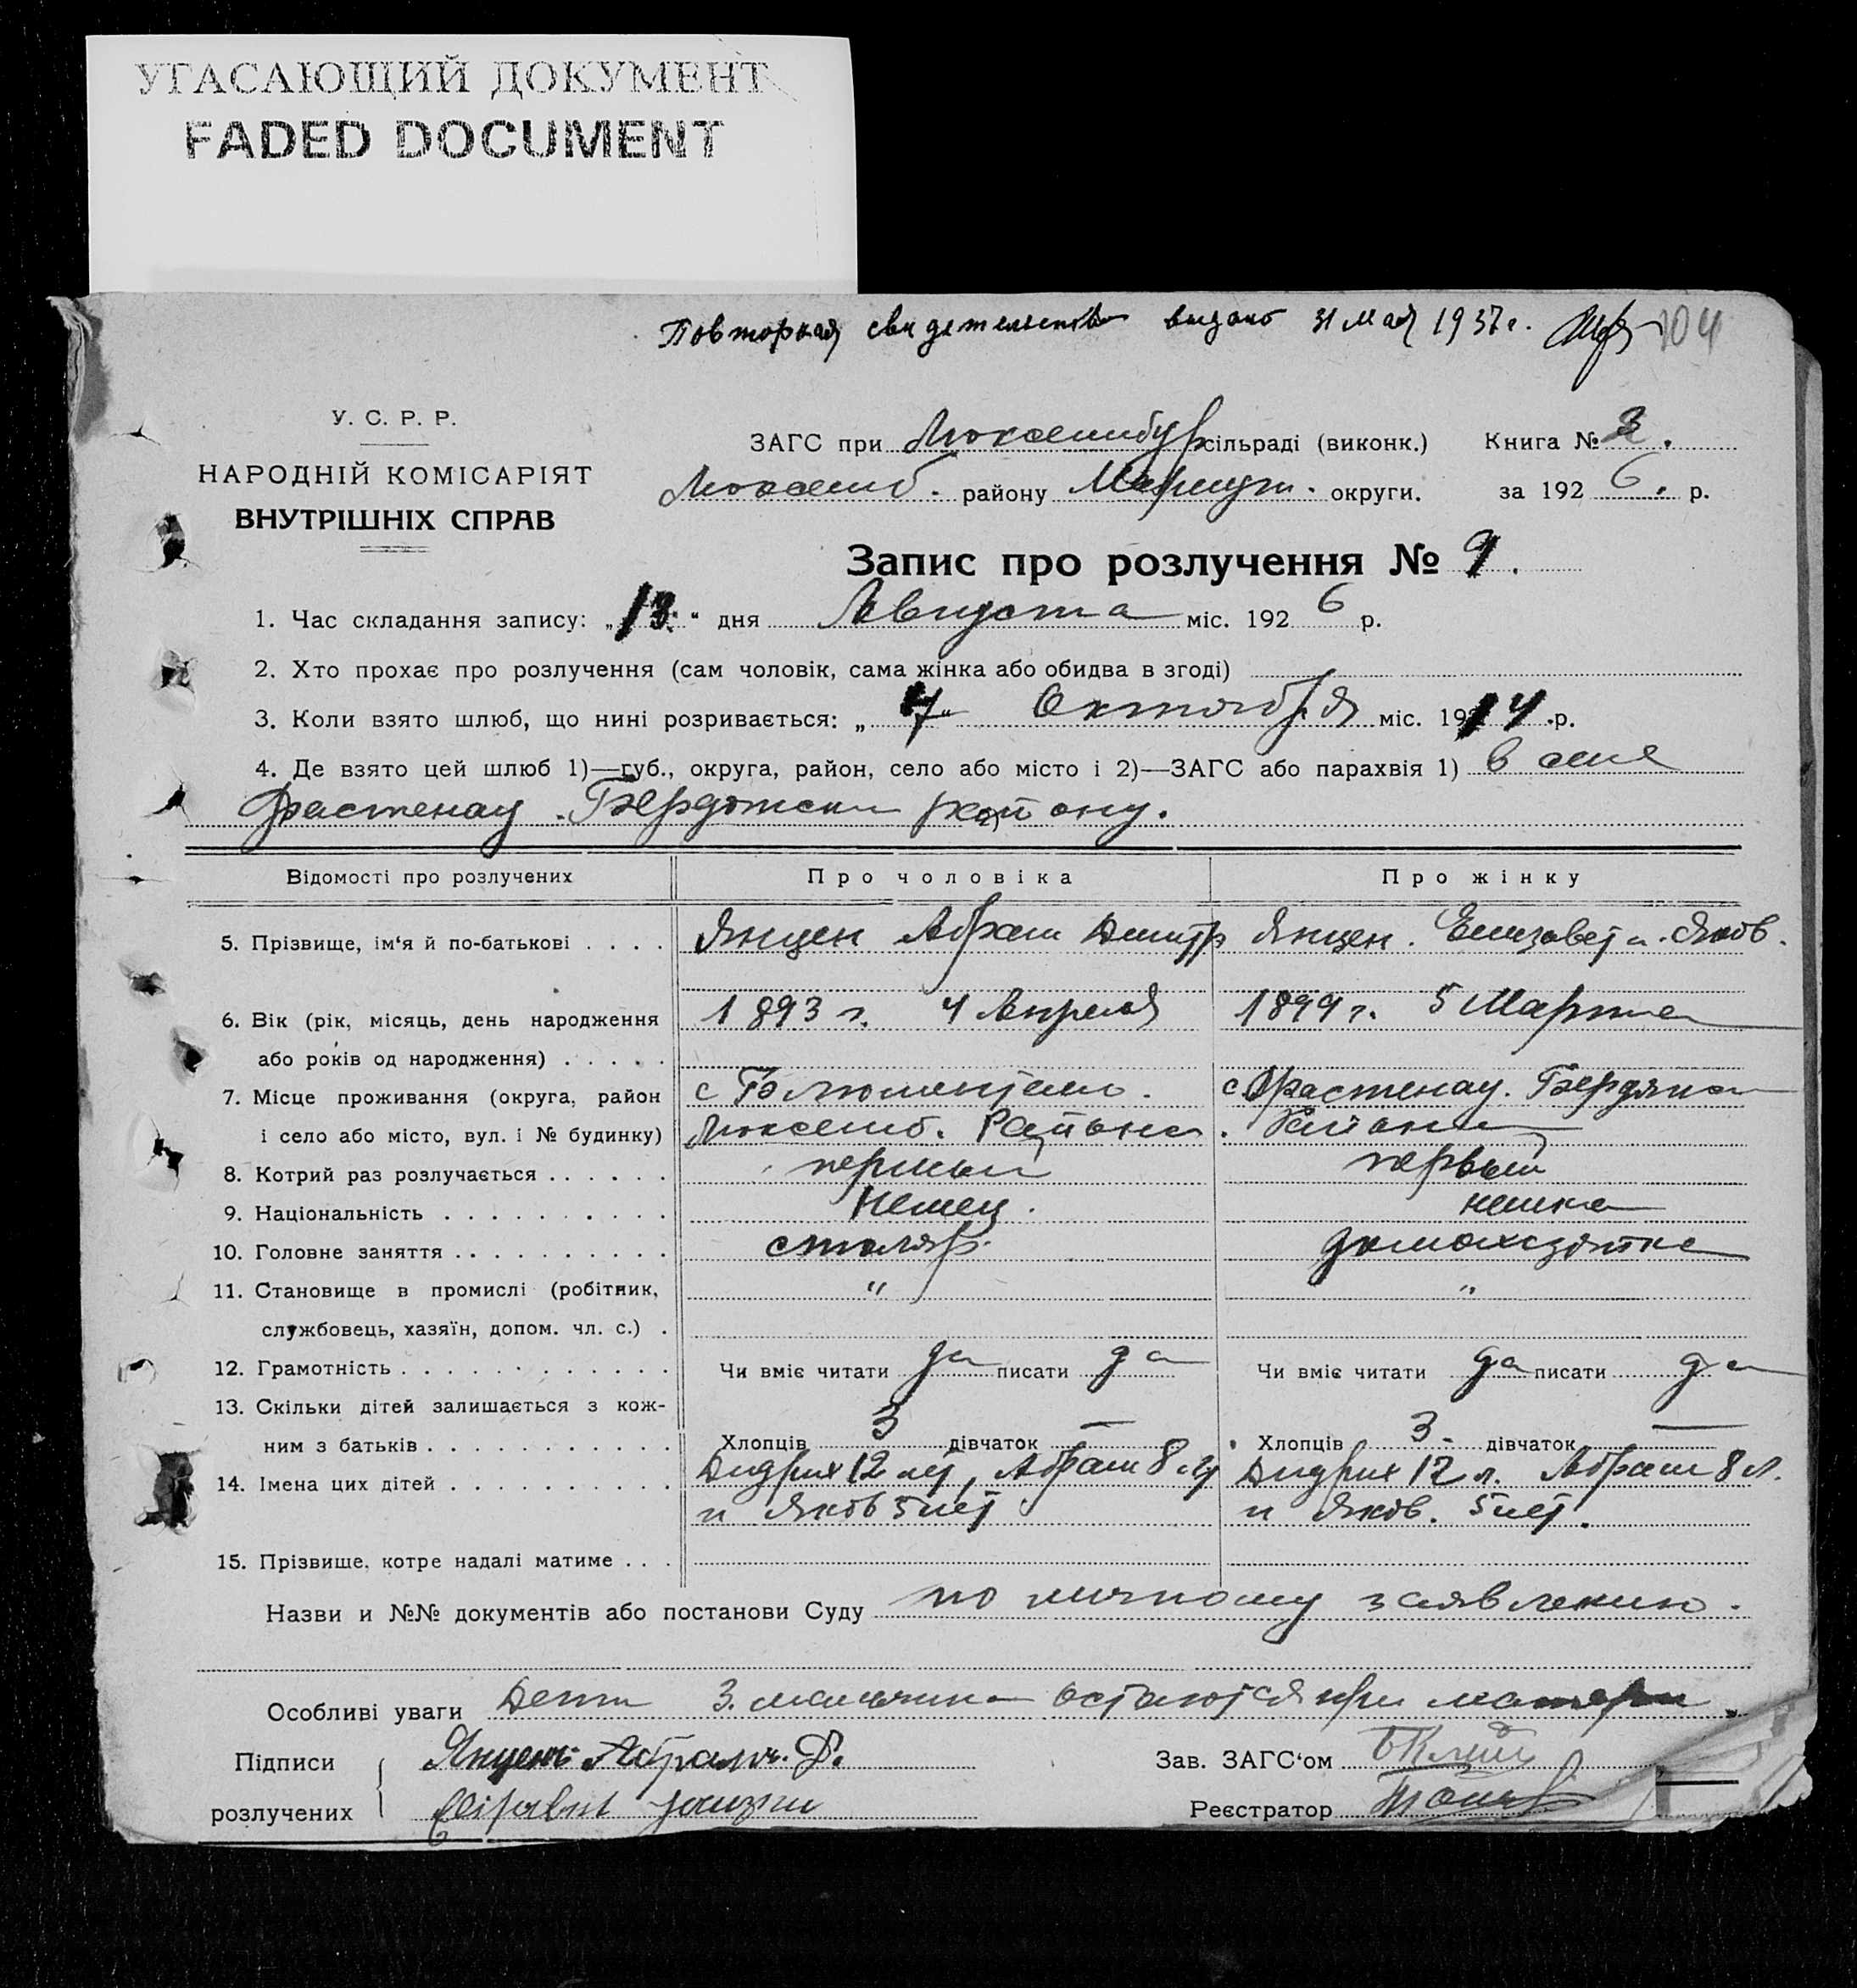 УГАСАЮЩИЙ ДОКУМЕНТ
FADED DOCUMENT
Повторная свидетельство выдано 31 Мая 1937 г. 104
У. С. Р. Р.
НАРОДНІЙ КОМІСАРІЯТ
ВНУТРІШНІХ СПРАВ
ЗАГС при Люксембур сільраді (виконк.) Книга № 3.
Люксемб. району Мариуп. округи. за 1926. р.
Запис про розлучення № 9.
1. Час складання запису: „13“ дня Августа міс. 1926 р.
2. Хто прохає про розлучення (сам чоловік, сама жінка або обидва в згоді)
3. Коли взято шлюб, що нині розривається: „7“ Октября міс. 1914 р.
4. Де взято цей шлюб 1)—губ., округа, район, село або місто і 2)—ЗАГС або парахвія 1) в селе
Фрастенау Бердянски району.
Відомості про розлучених Про чоловіка Про жінку
5. Прізвище, ім‘я й по-батькові . . . . Янцен Абрам Дмитр Янцен. Елизавета. Яков.
6. Вік (рік, місяць, день народження 1893 г. 4 Апреля 1899 г. 5 Марта
або років од народження) . . . . .
7. Місце проживання (округа, район с Блюментам. с Фрастенау. Бердянск
і село або місто, вул. і № будинку) Люксемб. Района. Района
8. Котрий раз розлучається . . . . . . первый первый
9. Національність . . . . . . . . . . Немец. немка
10. Головне заняття . . . . . . . . . . столяр. домохозяйка
11. Становище в промислі (робітник, " "
службовець, хазяїн, допом. чл. с.) .
12. Грамотність . . . . . . . . . . . . Чи вміє читати да писати да Чи вміє читати да писати да
13. Скільки дітей залишається з кож-
ним з батьків . . . . . . . . . . . Хлопців 3 дівчаток — Хлопців 3. дівчаток —
14. Імена цих дітей . . . . . . . . . . Дидрих 12 лет, Абрам 8 л. Дидрих 12 л. Абрам 8 л.
и Яков 5 лет и Яков. 5 лет.
15. Прізвище, котре надалі матиме . . .
Назви и №№ документів або постанови Суду по личному заявлению.
Особливі уваги Дети 3. мальчика остаются при матери.
Підписи Янцен Абрам. Д. Зав. ЗАГС‘ом
розлучених Реєстратор